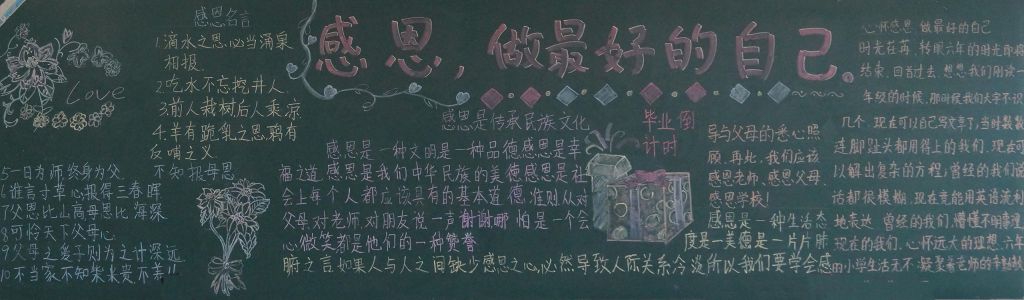 感恩，做最好的自己。
感恩名言
1.滴水之恩,必当涌泉
相报.
2.吃水不忘挖井人.
3.前人栽树后人乘凉
4.羊有跪乳之恩鸦有
反哺之义
Love
5一日为师终身为父
不知报母恩
6谁言寸草心报得三春晖
7父恩比山高母恩比海深
8可怜天下父母心
9父母之爱子则为之计深远
10不当家不知柴米贵不养儿
感恩是传承民族文化
感恩是一种文明是一种品德感恩是幸
福之道.感恩是我们中华民族的美德感恩是社
会上每个人都应该具有的基本道德准则从对
父母对老师对朋友说一声謝謝哪怕是一个会
心微笑都是他们的一种赞誉
毕业倒
计时
导与父母的悉心照
顾.再此,我们应该
感恩老师、感恩父母.
感恩学校!
感恩是一种生活态
度是一美德是一片片肺
腑之言如果人与人之间缺少感恩之心,必然导致人际关系冷淡所以我们要学会感
心怀感恩 做最好的自己
时光在再,转眼六年的时光即将
结束.回首过去,想想我们刚读一
年级的时候,那时候我们大字不识
几个.现在可以自己写文章了,当时数数
连脚趾头都用得上的我们.现在可
以解出复杂的方程,曾经的我们说
话都很模糊,现在竟能用英语流利
地表达.曾经的我们,懵懂不明事理
现在的我们,心怀远大的理想.六年
的小学生活无不凝聚着老师的辛勤教